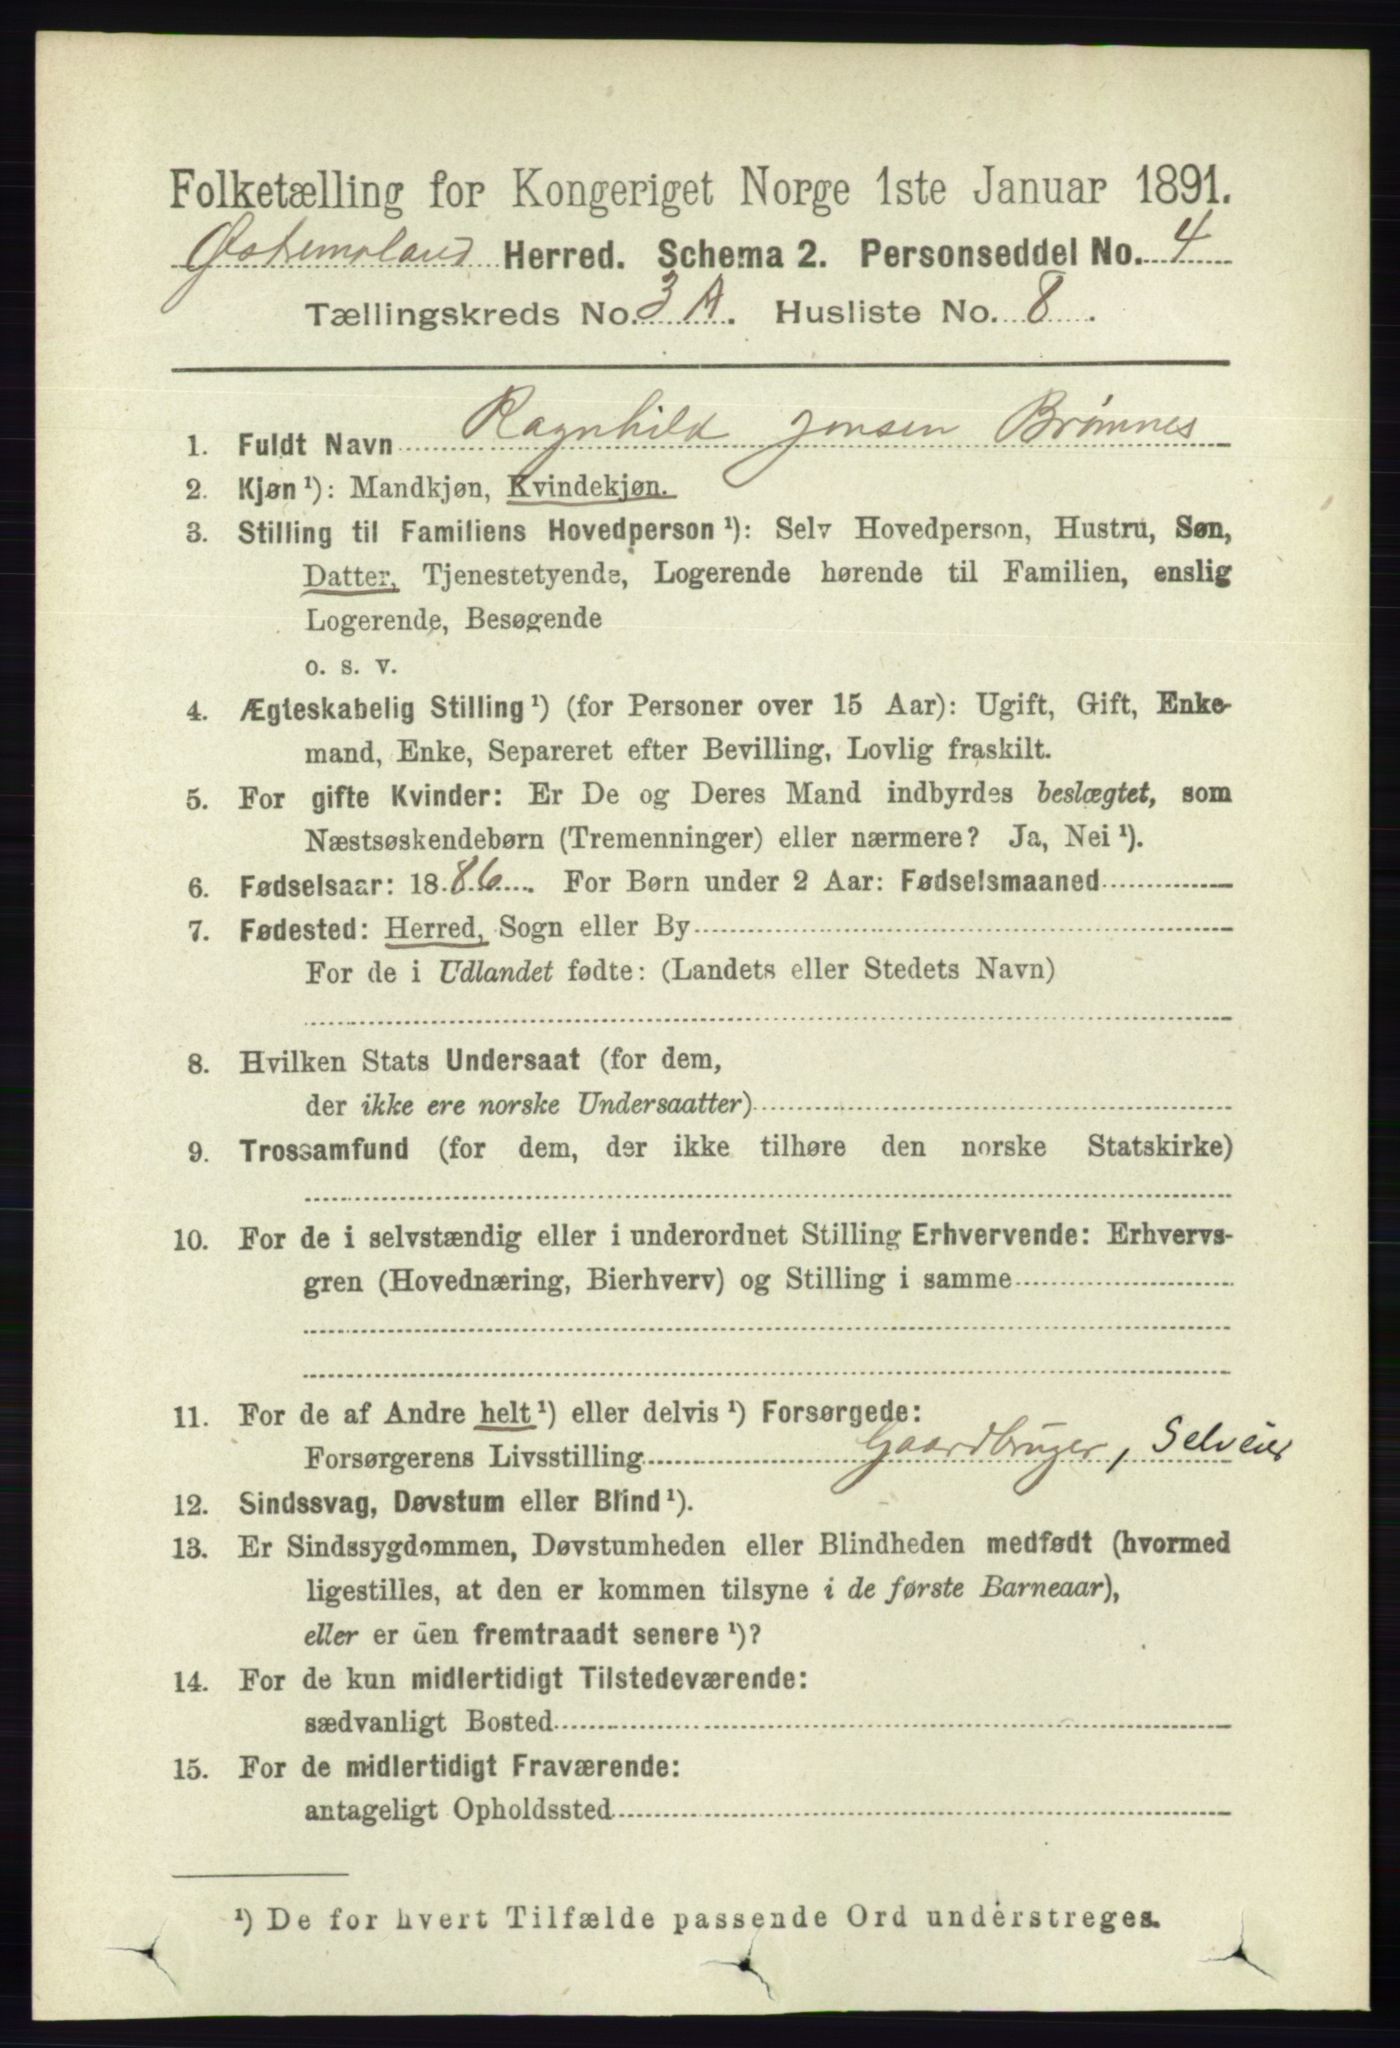 Folketælling for Kongeriget Norge 1ste Januar 1891.
Østremoland Herred. Schema 2. Personseddel No. 4
Tællingskreds No. 3 A. Husliste No. 8.
1. Fuldt Navn Ragnhild Jonsen Brømnes
2. Kjøn ¹): Mandkjøn, Kvindekjøn.
3. Stilling til Familiens Hovedperson ¹): Selv Hovedperson, Hustru, Søn,
Datter, Tjenestetyende, Logerende hørende til Familien, enslig
Logerende, Besøgende
o. s. v.
4. Ægteskabelig Stilling ¹) (for Personer over 15 Aar): Ugift, Gift, Enke-
mand, Enke, Separeret efter Bevilling, Lovlig fraskilt.
5. For gifte Kvinder: Er De og Deres Mand indbyrdes beslægtet, som
Næstsøskendebørn (Tremenninger) eller nærmere? Ja, Nei ¹).
6. Fødselsaar: 1886. For Børn under 2 Aar: Fødselsmaaned
7. Fødested: Herred, Sogn eller By
For de i Udlandet fødte: (Landets eller Stedets Navn)
8. Hvilken Stats Undersaat (for dem,
der ikke ere norske Undersaatter)
9. Trossamfund (for dem, der ikke tilhøre den norske Statskirke)
10. For de i selvstændig eller i underordnet Stilling Erhvervende: Erhvervs-
gren (Hovednæring, Bierhverv) og Stilling i samme
11. For de af Andre helt ¹) eller delvis ¹) Forsørgede:
Forsørgerens Livsstilling Gaardbruger, Selveier
12. Sindssvag, Døvstum eller Blind ¹).
13. Er Sindssygdommen, Døvstumheden eller Blindheden medfødt (hvormed
ligestilles, at den er kommen tilsyne i de første Barneaar),
eller er den fremtraadt senere ¹)?
14. For de kun midlertidigt Tilstedeværende:
sædvanligt Bosted
15. For de midlertidigt Fraværende:
antageligt Opholdssted
¹) De for hvert Tilfælde passende Ord understreges.